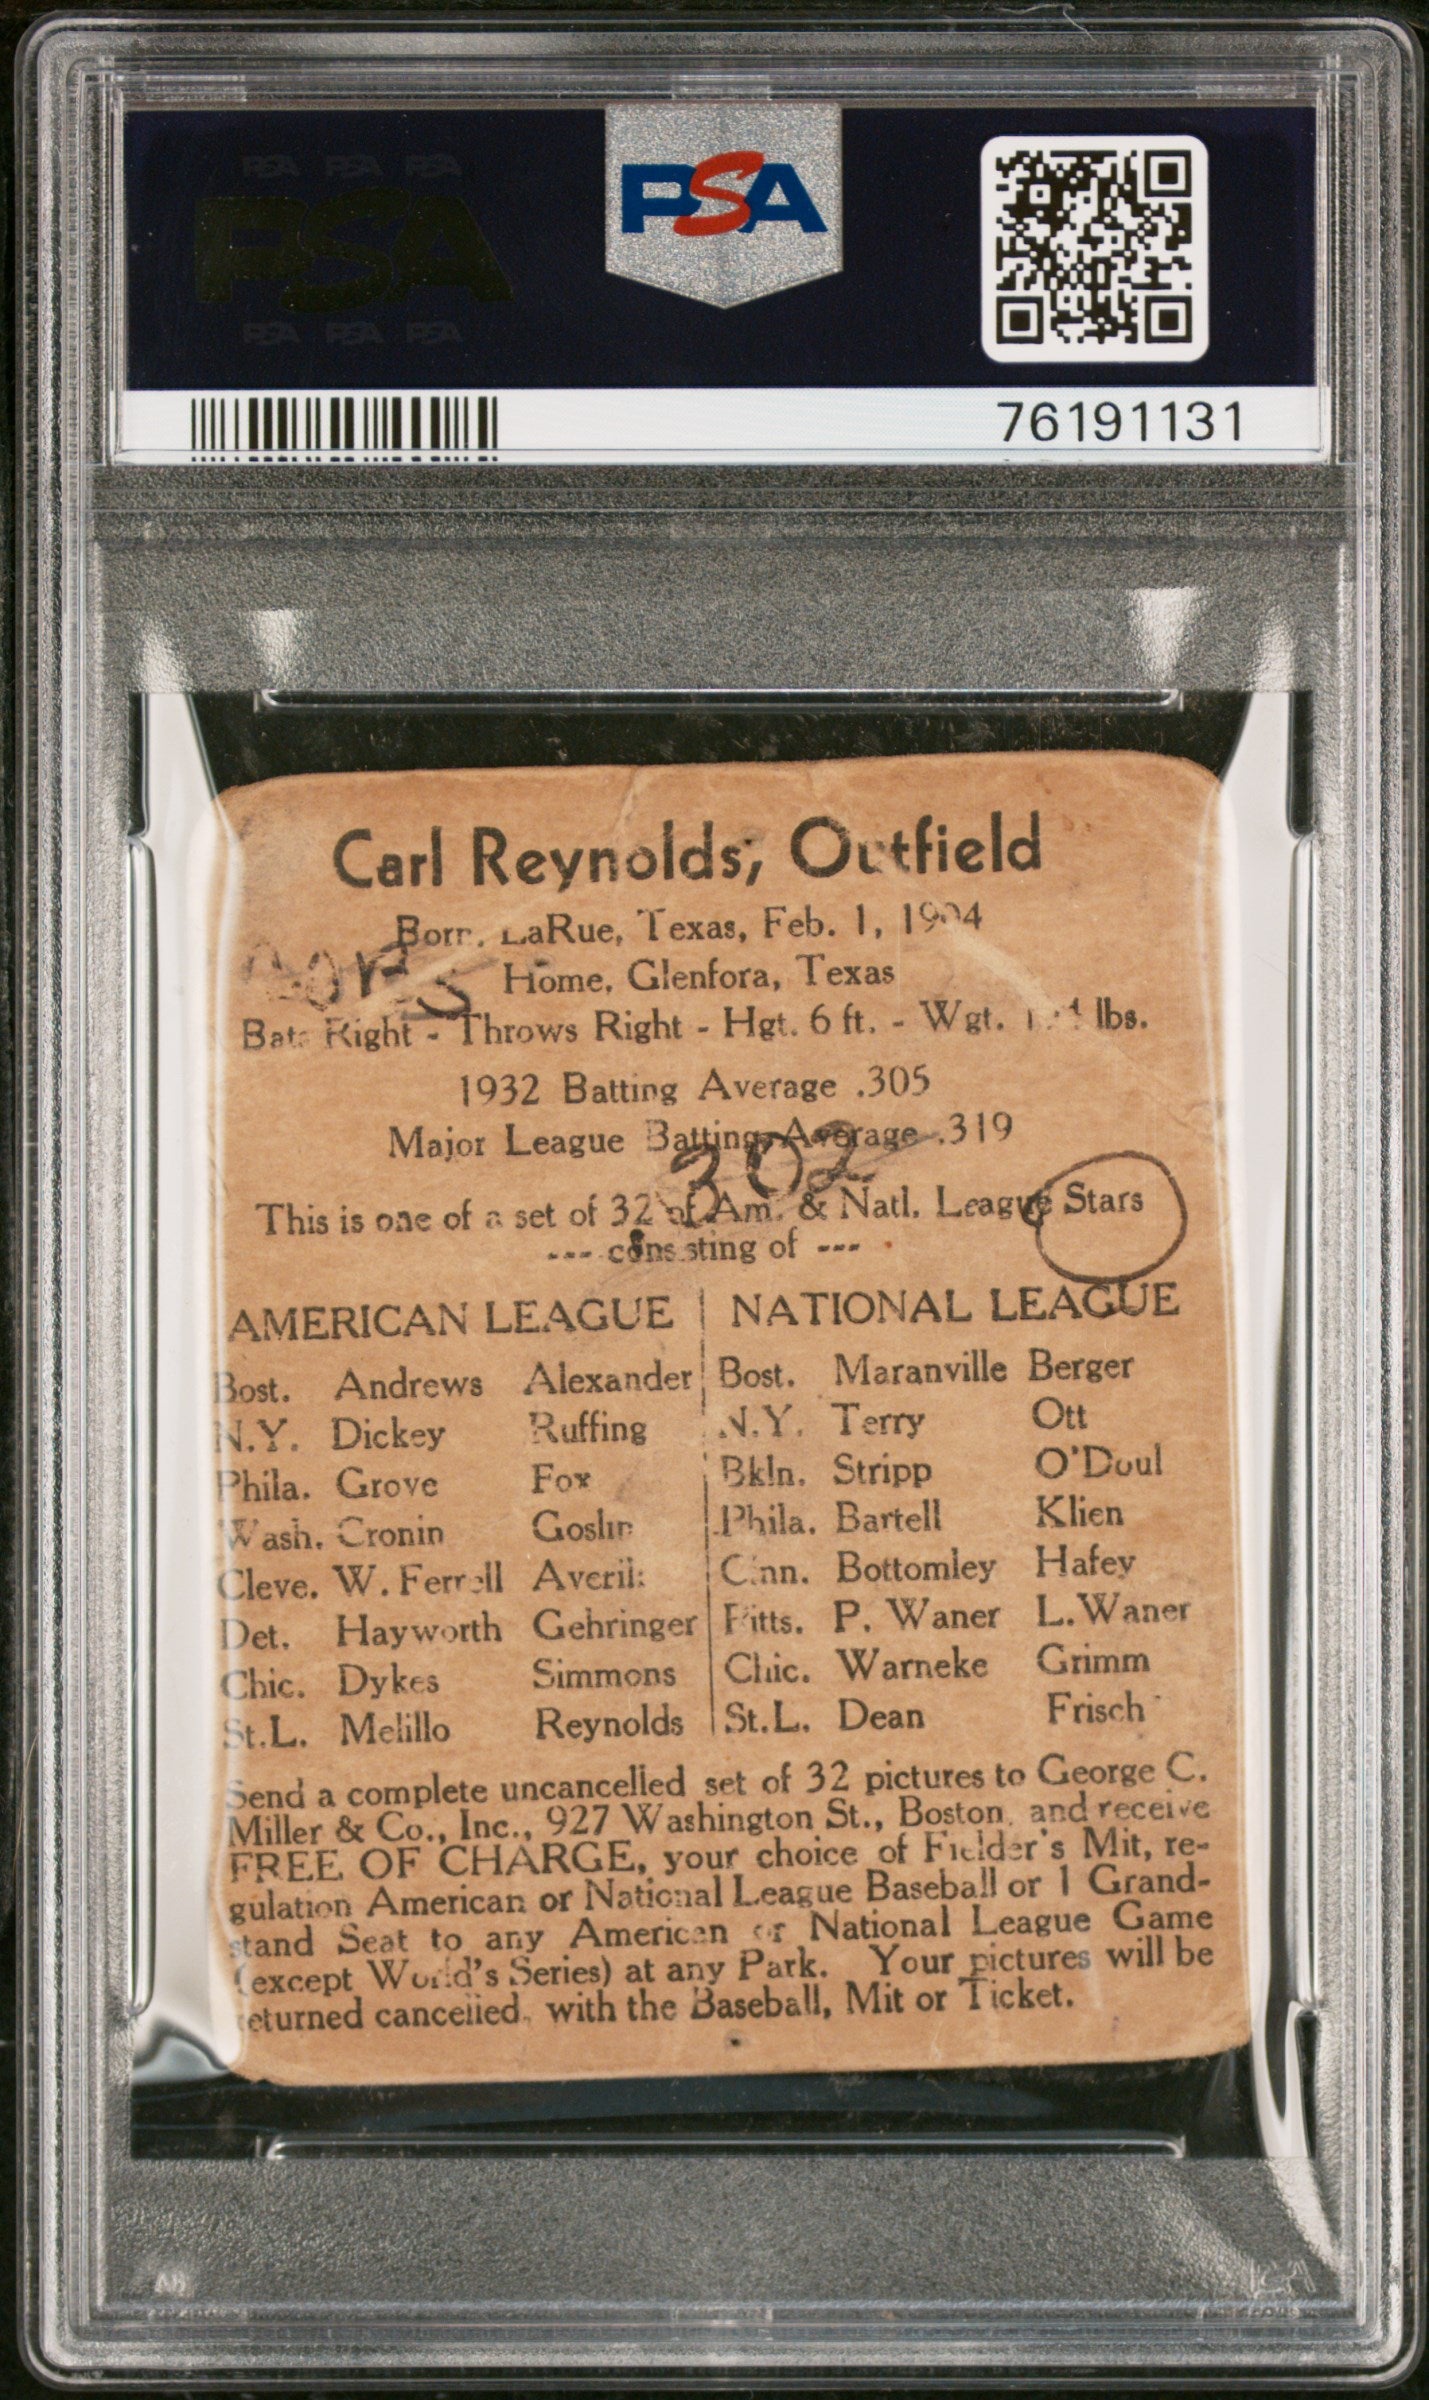 PSA PSA PSA
PSA
PSA PSA PSA
PSA
76191131
Carl Reynolds, Outfield
Born, LaRue, Texas, Feb. 1, 1904
Home, Glenfora, Texas
Bats Right - Throws Right - Hgt. 6 ft. - Wgt. lbs.
1932 Batting Average .305
Major League Batting Average .319
302
This is one of a set of 32 of Am. & Natl. League Stars
--- consisting of ---
AMERICAN LEAGUE | NATIONAL LEAGUE
Bost. Andrews Alexander Bost. Maranville Berger
N.Y. Dickey Ruffing N.Y. Terry Ott
Phila. Grove Fox Bkln. Stripp O'Doul
Wash. Cronin Goslin Phila. Bartell Klien
Cleve. W. Ferrell Averill Cinn. Bottomley Hafey
Det. Hayworth Gehringer Pitts. P. Waner L. Waner
Chic. Dykes Simmons Chic. Warneke Grimm
St.L. Melillo Reynolds St.L. Dean Frisch
Send a complete uncancelled set of 32 pictures to George C.
Miller & Co., Inc., 927 Washington St., Boston, and receive
FREE OF CHARGE, your choice of Fielder's Mit, re-
gulation American or National League Baseball or 1 Grand-
stand Seat to any American or National League Game
(except World's Series) at any Park. Your pictures will be
returned cancelled, with the Baseball, Mit or Ticket.